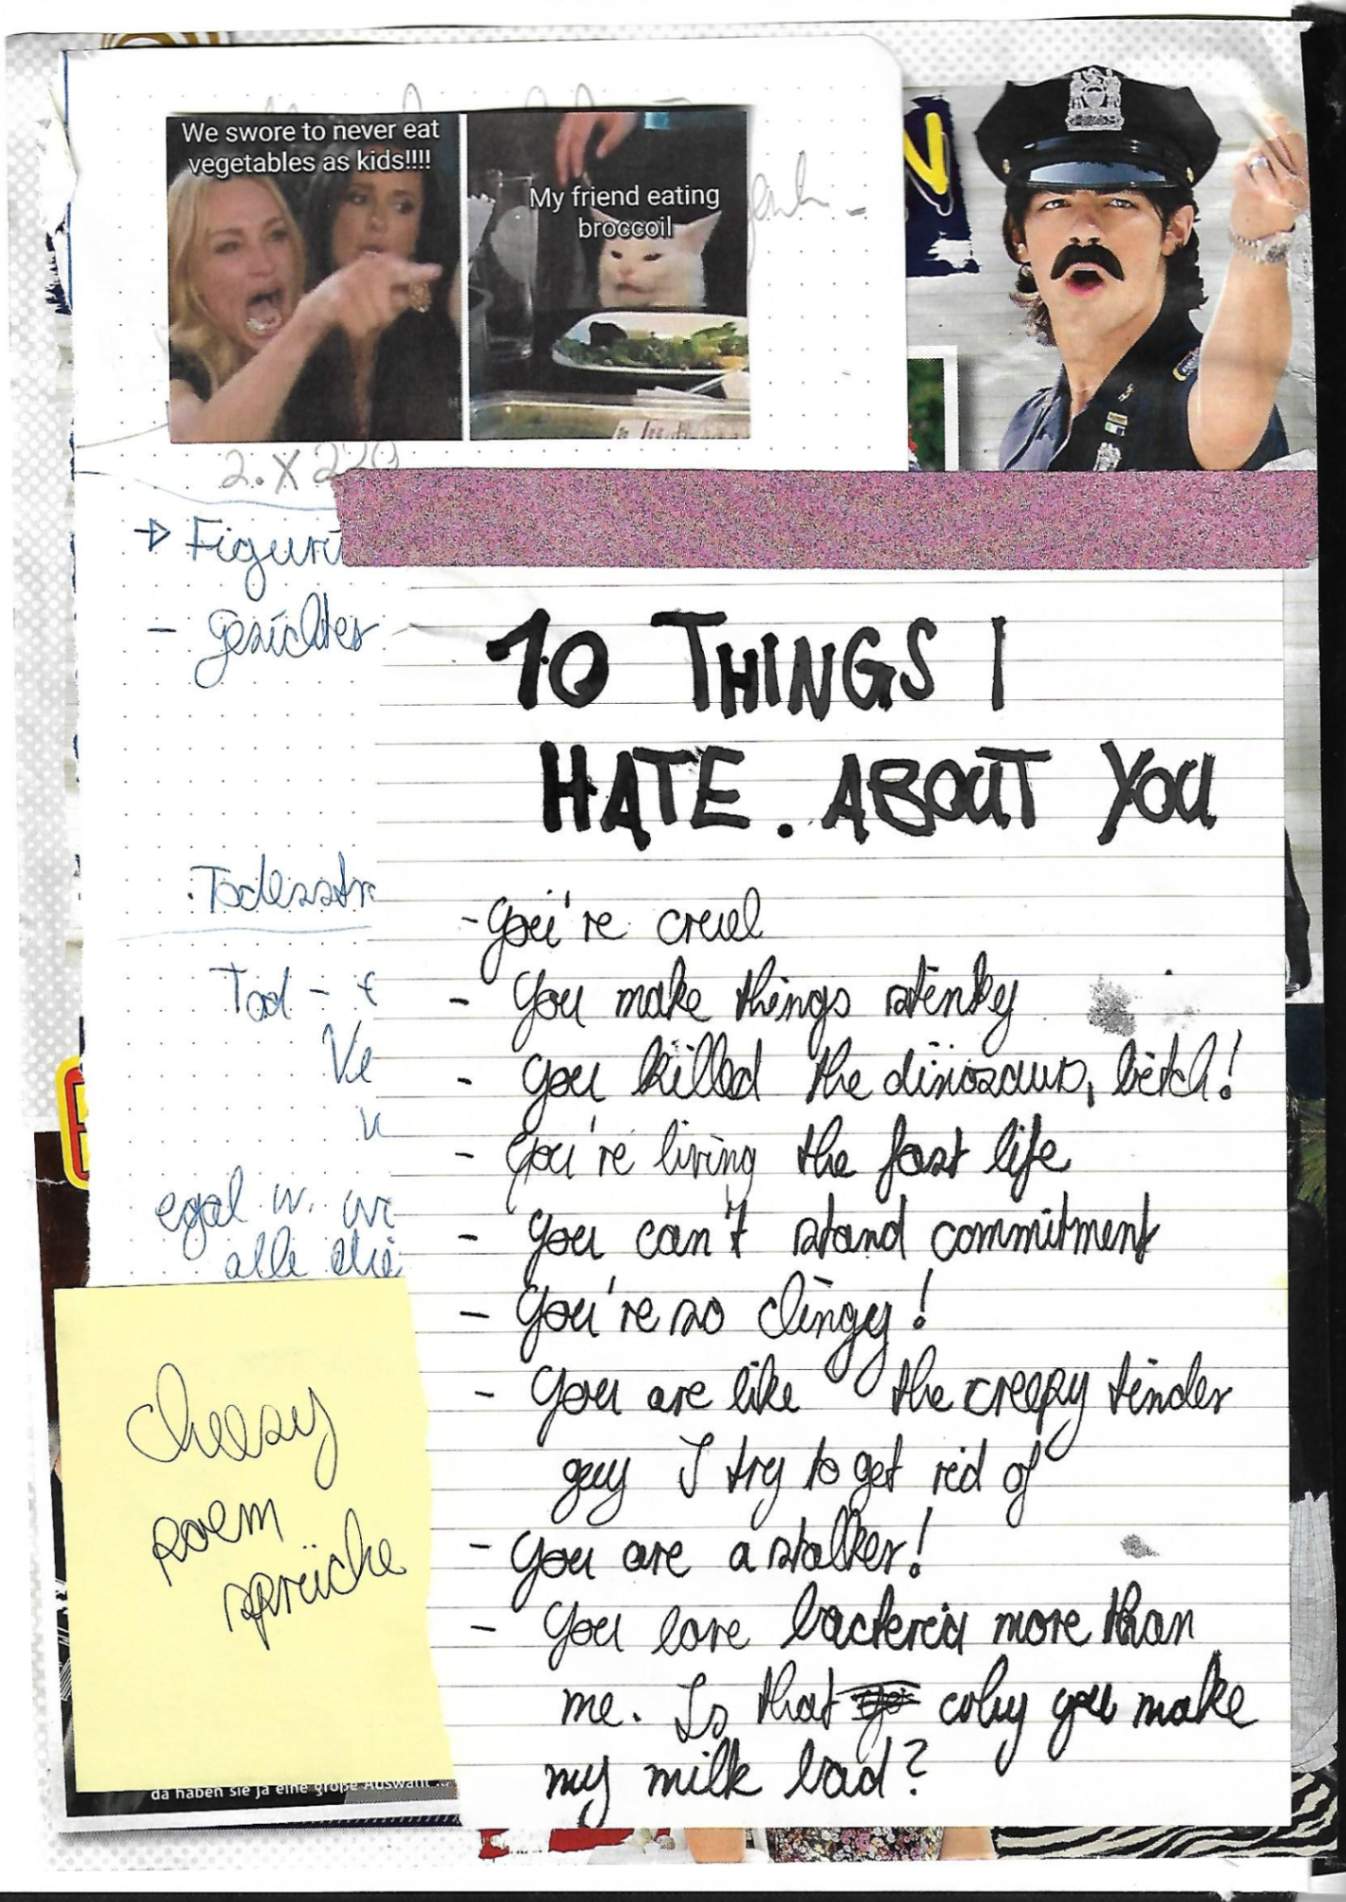 We swore to never eat
vegetables as kids!!!!
My friend eating
broccoil
2. X 220
→ Figuri
- gesichter
Todesstr
Tod -
Ve
egal w. wi
alle die
10 THINGS I
HATE. ABOUT YOU
- You're cruel
- You make things stinky
- You killed the dinosaurs, bitch!
- You're living the fast life
- You can't stand commitment
- You're so clingy!
- You are like the creepy tinder
guy I try to get rid of
- You are a stalker!
- You love bacteria more than
me. Is that why you make
my milk bad?
cheesy
poem
sprüche
da haben sie ja eine große Auswahl ...